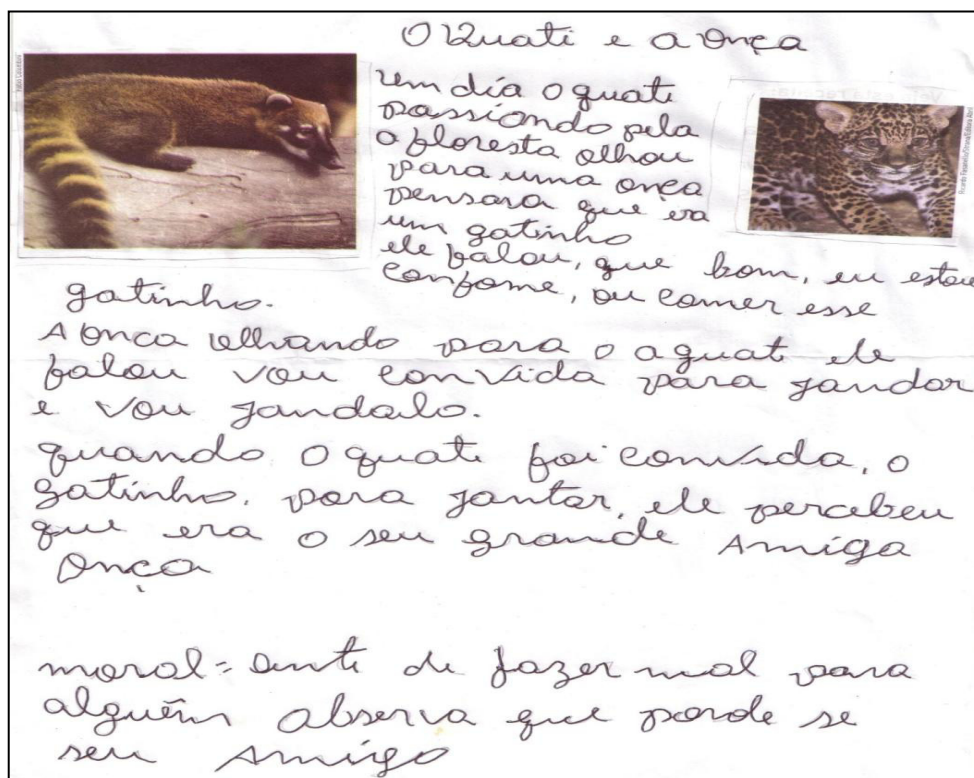 O Quati e a onça
um dia o quati
passiando pela
a floresta olhou
para uma onça
pensara que era
um gatinho
ele falou, que bom, eu estou
comfome, ou comer esse
gatinho.
A onca olhando para o aguati ele
falou vou convida para jandar
e vou jandalo.
quando o quati foi convida, o
gatinho, para jantar, ele percebeu
que era o seu grande Amiga
Onça
moral = ante de fazer mal para
alguêm observa que porde se
seu Amigo